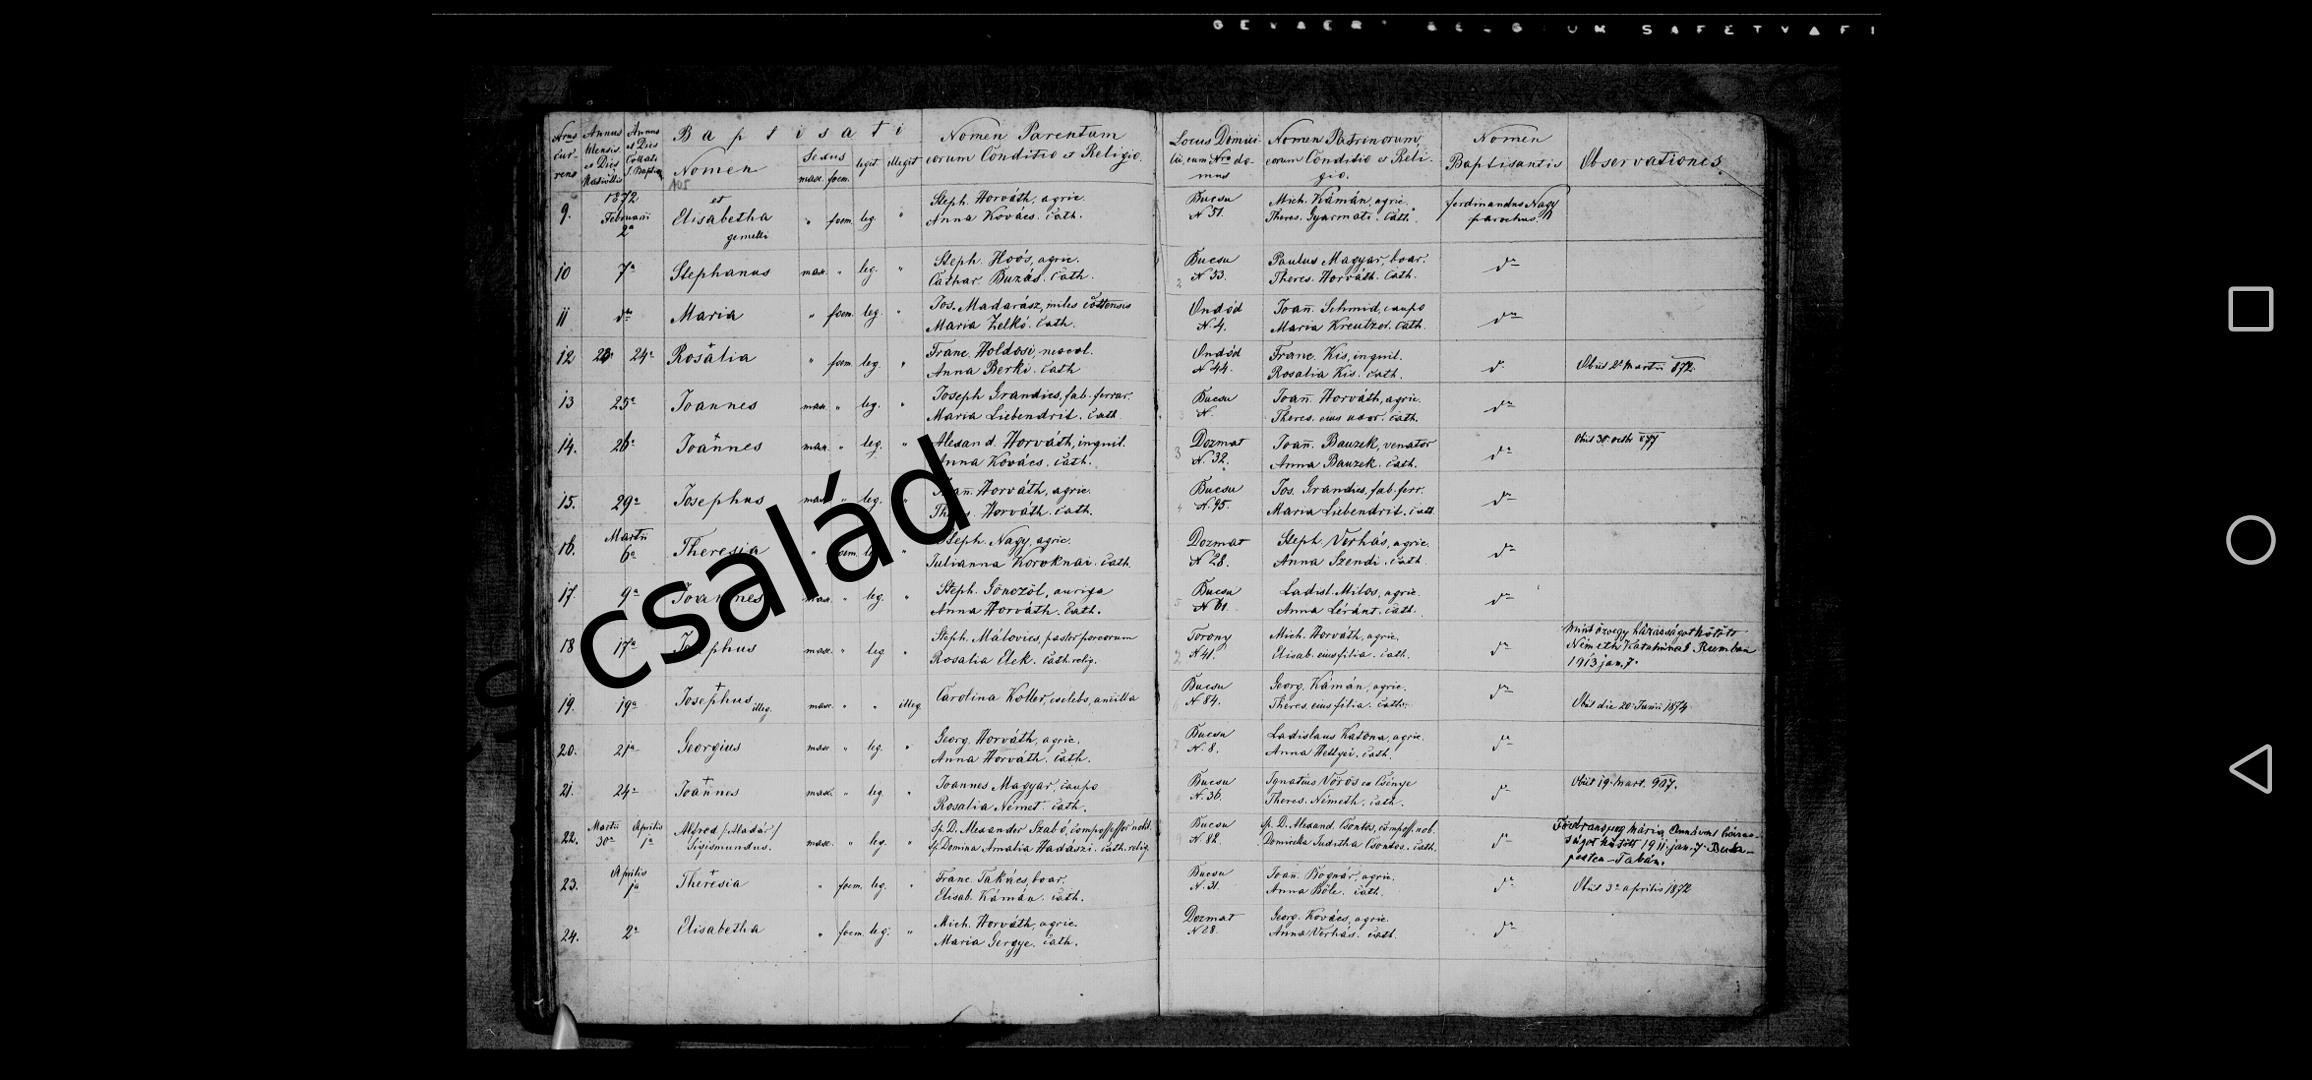 Nrus currens
Annus Mensis et Dies Nativitatis
Annus et Dies Collati S. Baptismi
Baptisati
Nomen
Sexus
masc. foem.
legit illegit
Nomen Parentum
eorum Conditio et Religio.
Locus Domicilii, cum Nro domus
Nomen Patrinorum,
eorum Conditio et Religio.
Nomen
Baptisantis
Observationes.
105
9. 1872 Februarii 2a et Elisabetha gemelli " foem. leg. "
Steph. Horváth, agric.
Anna Kovács. Cath.
Bucsu N 51.
Mich. Kámán, agric.
Theres. Gyarmati. Cath.
Ferdinandus Nagy
parochus.
10 7a Stephanus masc. " leg. "
Steph. Hoós, agric.
Cathar. Buzás. Cath.
Bucsu N 53.
Paulus Magyar, boar.
Theres. Horváth. Cath.
dto
11 dto Maria " foem. leg. "
Jos. Madarász, miles
Maria Zelkó. Cath.
Ondód N. 4.
Joan. Schmid, caupo
Maria Kreutzer. Cath.
dto
12 23a 24a Rosalia " foem. leg. "
Franc. Holdosi,
Anna Berki. Cath
Ondód N 44.
Franc. Kis, inquil.
Rosalia Kis. Cath.
dto
Obiit 2a Martii 872.
13 25a Joannes masc. " leg. "
Joseph Grandics, fab. ferrar.
Maria Liebendrit. Cath.
Bucsu N.
Joan. Horváth, agric.
Theres. eius uxor. Cath.
dto
14. 26a Joannes masc. " leg. "
Alexand. Horváth, inquil.
Anna Kovács. Cath.
Dozmat N. 32.
Joan. Bauzek, venator
Anna Bauzek. Cath.
dto
Obiit 30. octb 877
15. 29a Josephus masc. " leg. "
Joan. Horváth, agric.
Theres. Horváth. Cath.
Bucsu N. 95.
Jos. Grandics, fab. ferr.
Maria Liebendrit. Cath.
dto
16. Martii 6a Theresia " foem. leg. "
Steph. Nagy, agric.
Julianna Koroknai. Cath.
Dozmat N 28.
Steph. Verhás, agric.
Anna Szendi. Cath.
dto
17. 9a Joannes masc. " leg. "
Steph. Gönczöl, auriga
Anna Horváth. Cath.
Bucsu N 61.
Ladisl. Milos, agric.
Anna Léránt. Cath.
dto
18 17a Josephus masc. " leg "
Steph. Málovics, pastor porcorum
Rosalia Elek. Cath. relig.
Torony N 41.
Mich. Horváth, agric.
Elisab. eius filia. Cath.
dto
Mint özvegy házasságot kötött
Németh Katalinnal Rumban
1913 jan. 7.
19. 19a Josephus illeg. masc. " " illeg.
Carolina Koller, caelebs, ancilla
Bucsu N 84.
Georg. Kámán, agric.
Theres. eius filia. Cath.
dto
Obiit die 20a Junii 1874
20. 21a Georgius masc. " leg. "
Georg. Horváth, agric.
Anna Horváth. Cath.
Bucsu N. 8.
Ladislaus Katona, agric.
Anna Hettyei. Cath.
dto
21. 24a Joannes masc. " leg. "
Joannes Magyar, caupo
Rosalia Német. Cath.
Bucsu N. 36.
Ignatius Vörös ex Csénye
Theres. Németh. Cath.
dto
Obiit 19. Mart. 907.
22. Martii 30a Aprilis 1a Alfred /: Aladár :/ Sigismundus. masc. " leg. "
Sp. D. Alexander Szabó, compossessor nobil.
Sp. Domina Amalia Hadászi. Cath. relig.
Bucsu N. 82.
Sp. D. Alexand. Csontos, composs. nob.
Domicella Juditha Csontos. Cath.
dto
Mária Annával házas-
ságot kötött 1911. jan. 7. Buda-
pesten-Tabán.
23. Aprilis 1a Theresia " foem. leg. "
Franc. Takács, boar.
Elisab. Kámán. Cath.
Bucsu N. 31.
Joan. Bognár, agric.
Anna Böle. Cath.
dto
Obiit 3a aprilis 1872
24. 2a Elisabetha " foem. leg. "
Mich. Horváth, agric.
Maria Gergye. Cath.
Dozmat N 8.
Georg. Kovács, agric.
Anna Verhás. Cath.
dto
család